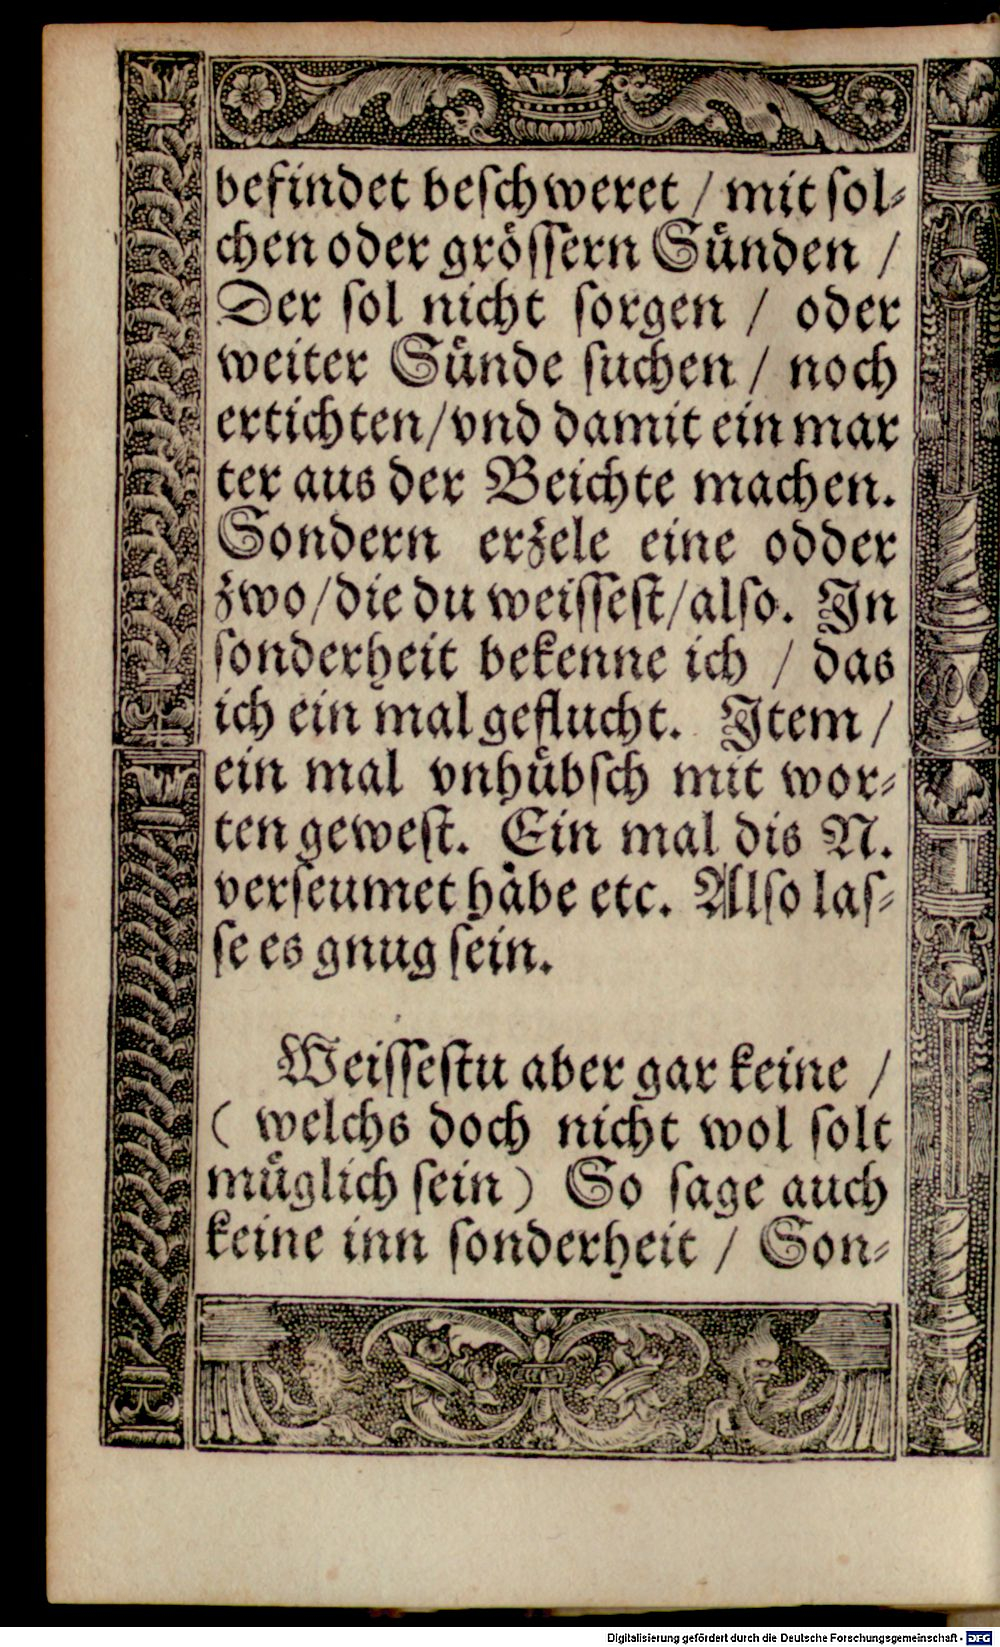 befindet beschweret / mit sol⸗
chen oder grössern Sünden /
Der sol nicht sorgen / oder
weiter Sünde suchen / noch
ertichten/vnd damit ein mar
ter aus der Beichte machen.
Sondern erzele eine odder
zwo/die du weissest/also. In
sonderheit bekenne ich / das
ich ein mal geflucht. Item /
ein mal vnhübsch mit wor⸗
ten gewest. Ein mal dis N.
verseumet habe etc. Also las⸗
se es gnug sein.
Weissestu aber gar keine /
( welchs doch nicht wol solt
müglich sein) So sage auch
keine inn sonderheit / Son⸗
Digitalisierung gefördert durch die Deutsche Forschungsgemeinschaft - DFG